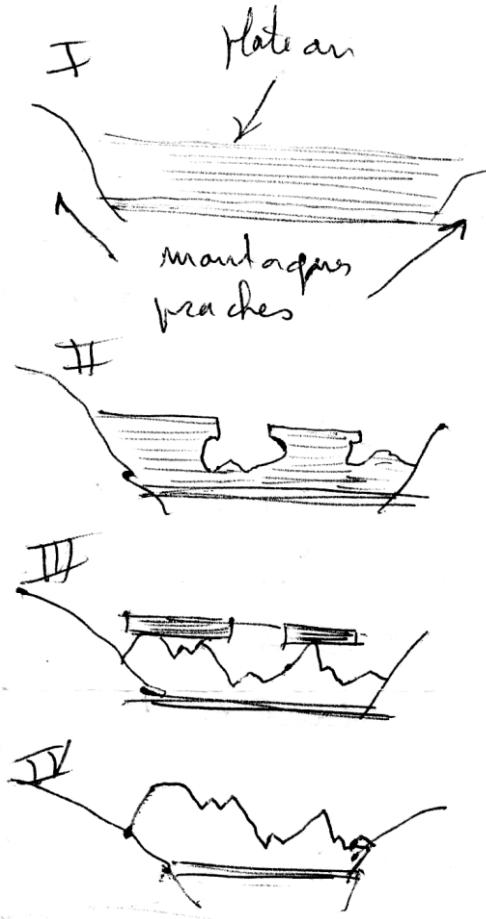 I
Plateau
montagnes
proches
II
III
IV